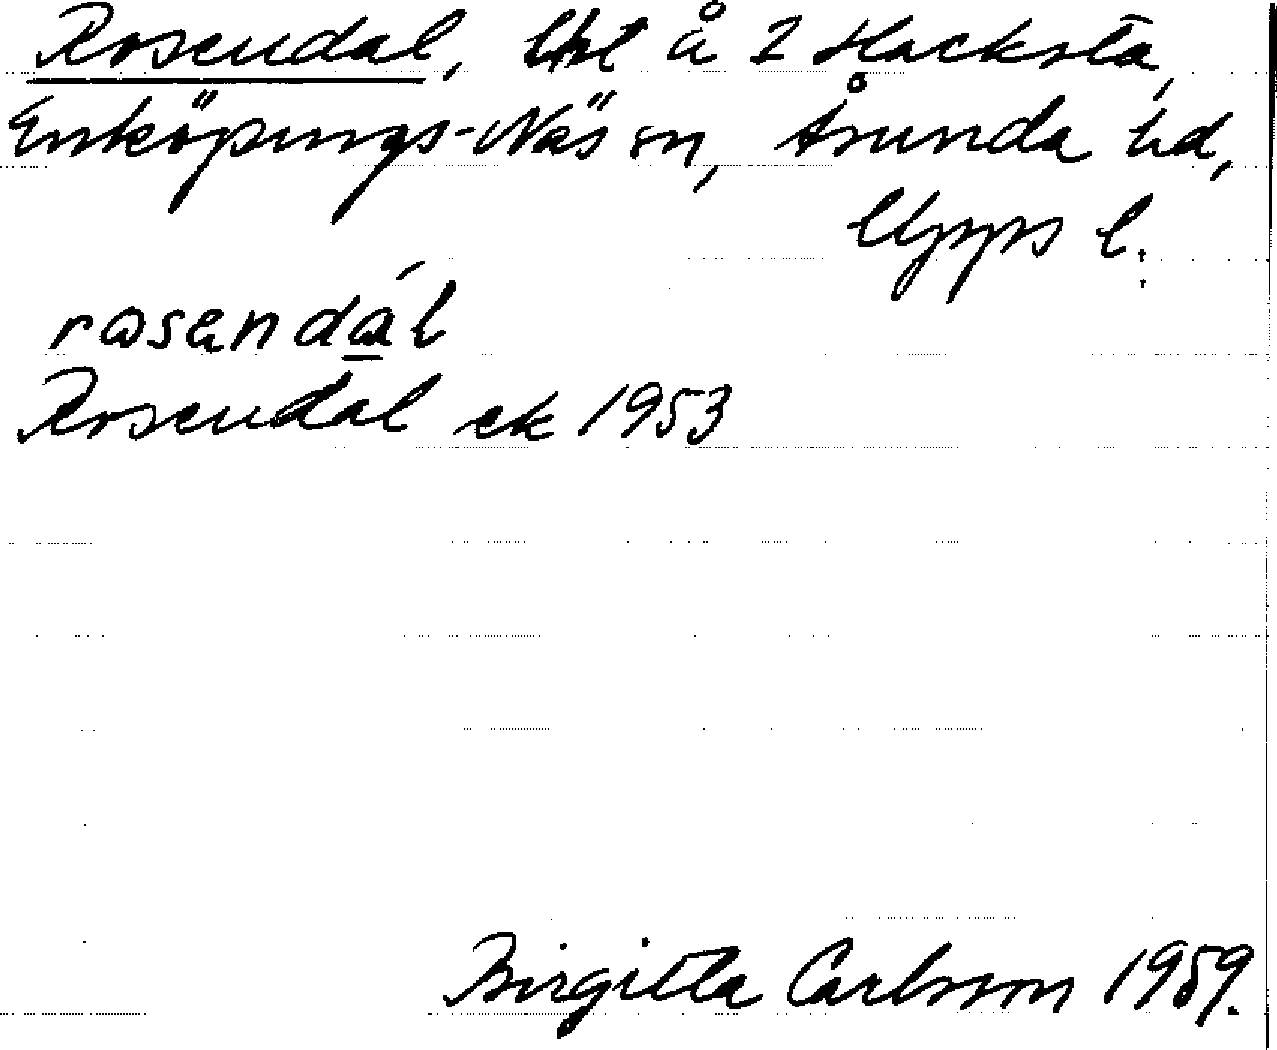 Rosendal, lht å 2 Hacksta,
Enköpings-Näs sn, Åsunda hd,
Upps l.
rosandál
Rosendal ek 1953
Birgitta Carlsson 1959.